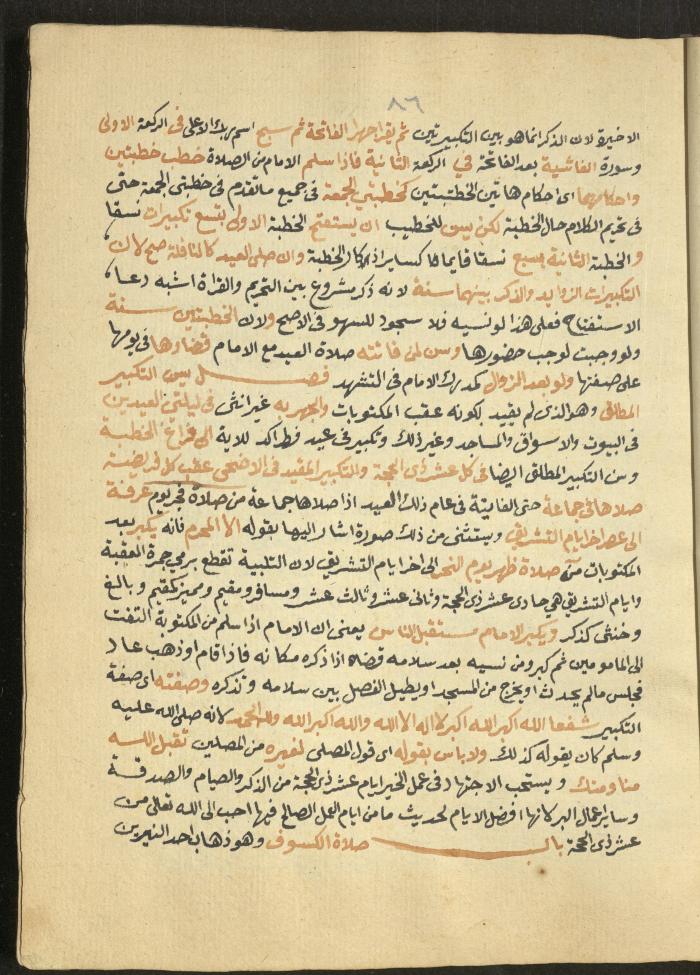 ٨٦
الاخيرة لان الذكر انما هو بين التكبيرتين ثم يقرا جهرا الفاتحة ثم سبح اسم ربك الاعلى في الركعة الاولى
وسورة الغاشية بعد الفاتحة في الركعة الثانية فاذا سلم الامام من الصلاة خطب خطبتين
واحكامهما اي احكام هاتين الخطبتين كخطبتي الجمعة في جميع ما تقدم في خطبتي الجمعة حتى
في تحريم الكلام حال الخطبة لكن يسن للخطيب ان يستفتح الخطبة الاولى بتسع تكبيرات نسقا
والخطبة الثانية بسبع نسقا قايما كساير اذكار الخطبة وان صلى العيد كالنافلة صح لان
التكبيرات الزوايد والذكر بينهما سنة لانه ذكر مشروع بين التحريم والقراة اشبه دعاء
الاستفتاح فعلى هذا لو نسيه فلا سجود للسهو في الاصح ولان الخطبتين سنة
ولو وجبت لوجب حضورها وسن لمن فاتته صلاة العيد مع الامام قضاوها في يومها
على صفتها ولو بعد الزوال كمدرك الامام في التشهد فصل يسن التكبير
المطلق وهو الذي لم يقيد بكونه عقب المكتوبات والجهر به غير انثى في ليلتي العيدين
في البيوت والاسواق والمساجد وغير ذلك وتكبير في عيد فطر اكد للاية الى فراغ الخطبة
وسن التكبير المطلق ايضا في كل عشر ذي الحجة والتكبير المقيد في الاضحى عقب كل فريضة
صلاها في جماعة حتى الفايتة في عام ذلك العيد اذا صلاها جماعة من صلاة فجر يوم عرفة
الى عصر اخر ايام التشريق ويستثنى من ذلك صورة اشار اليها بقوله الا المحرم فانه يكبر بعد
المكتوبات من صلاة ظهر يوم النحر الى اخر ايام التشريق لان التلبية تقطع برمي جمرة العقبة
وايام التشريق هي حادي عشر ذي الحجة وثاني عشر وثالث عشر ومسافر ومقيم ومميز كمقيم وبالغ
وخنثى كذكر ويكبر الامام مستقبل الناس يعني ان الامام اذا سلم من المكتوبة التفت
الى المامومين ثم كبر ومن نسيه بعد سلامه قضاه اذا ذكره مكانه فاذا قام او ذهب عاد
فجلس مالم يحدث او يخرج من المسجد او يطيل الفصل بين سلامه وتذكره وصفته اي صفة
التكبير شفعا الله اكبر الله اكبر لا اله الا الله والله اكبر الله اكبر ولله الحمد لانه صلى الله عليه
وسلم كان يقوله كذلك ولا باس بقوله اي قول المصلي لغيره من المصلين تقبل الله
منا ومنك ويستحب الاجتهاد في عمل الخير ايام عشر ذي الحجة من الذكر والصيام والصدقة
وساير اعمال البر لانها افضل الايام لحديث ما من ايام العمل الصالح فيها احب الى الله تعالى من
عشر ذي الحجة باب صلاة الكسوف وهو ذهاب احد النيرين